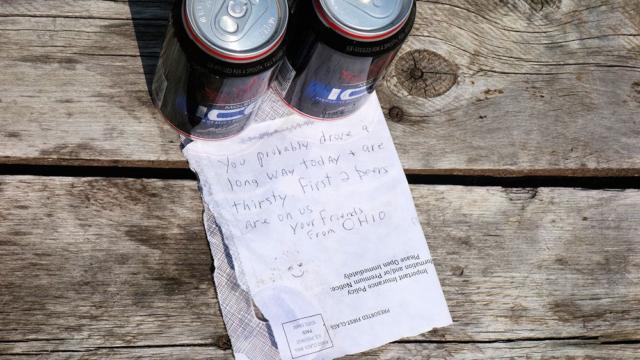 ICE
You probably drove a
long way today + are
thirsty First 2 beers
are on us
Your Friends
From OHIO
Important Insurance Policy
Information and/or Premium Notice:
Please Open Immediately
PRESORTED FIRST-CLASS